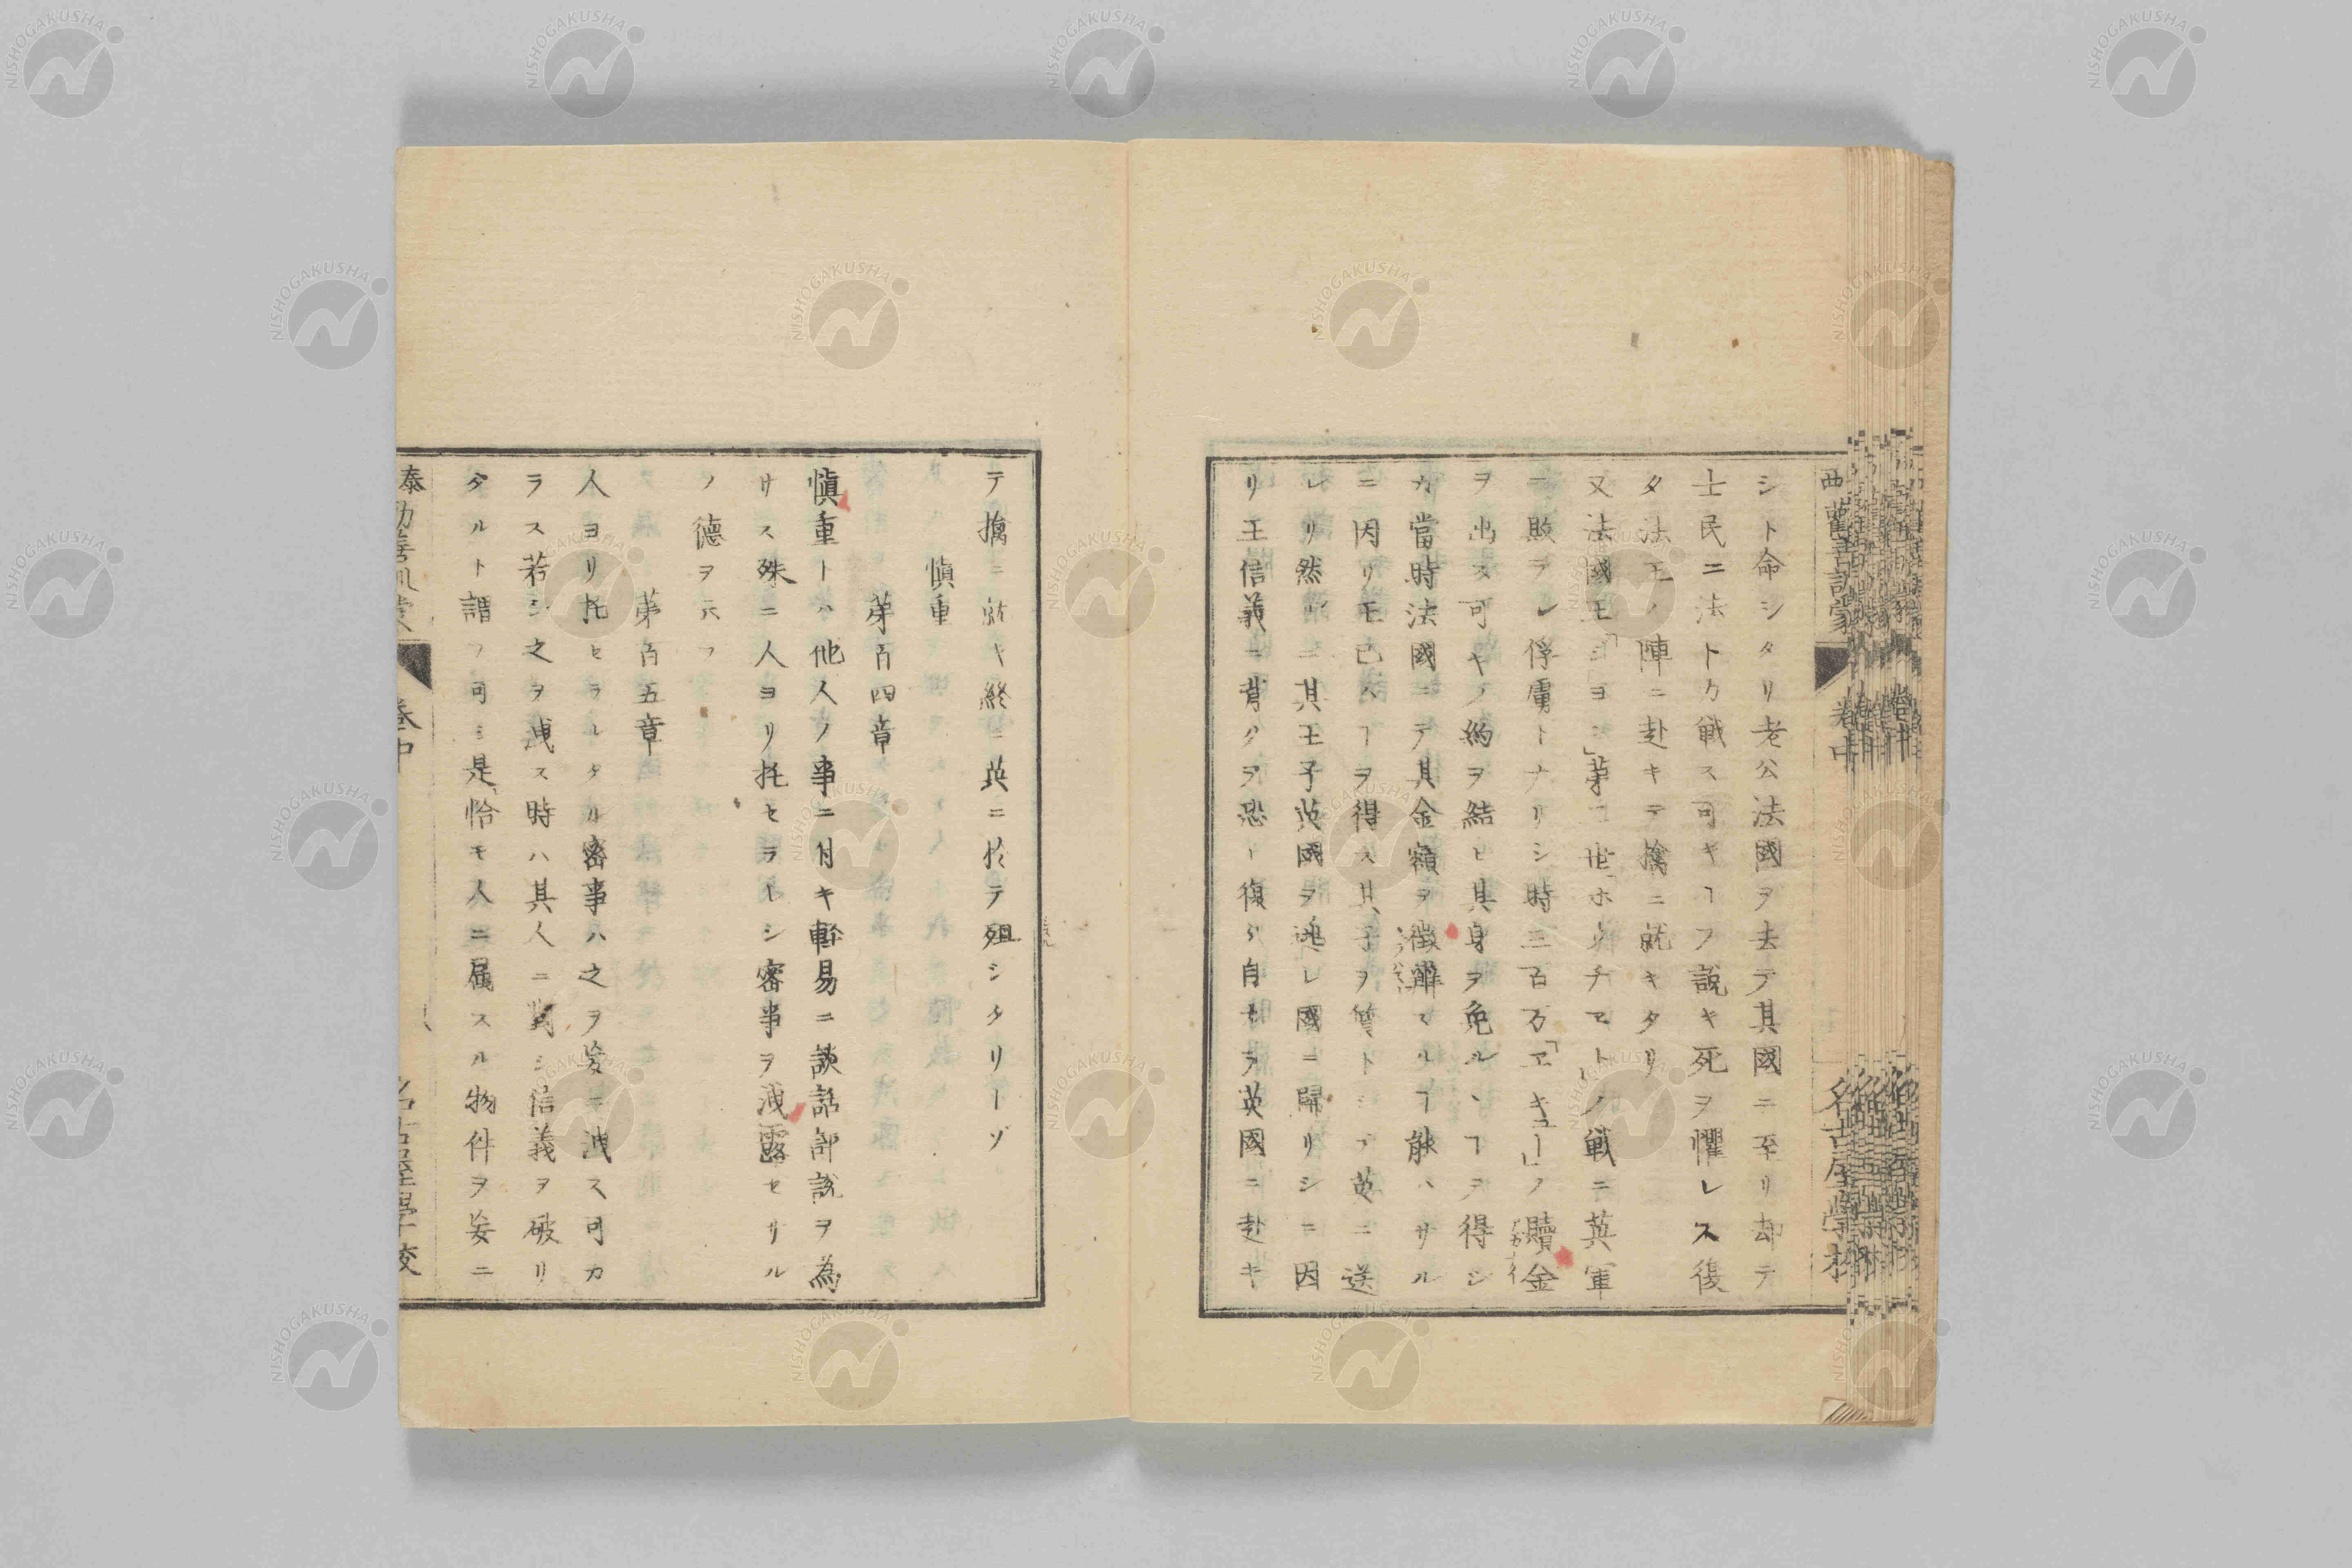 シト命シタリ老公法國ヲ去テ其國ニ至リ却テ
士民ニ法トカ戦ス可キヿヲ説キ死ヲ懼レス復
タ法王ノ陣ニ赴キテ擒ニ就キタリ
又法國王「ジョン」第一世「ポアチエト」ノ戦ニ英軍
ニ敗ラレ俘虜トナリシ時三百万「エキュー」ノ贖金
ヲ出ス可キノ約ヲ結ヒ其身ヲ免ルヽヿヲ得シ
カ當時法國ニテ其金額ヲ徴解スルヿ能ハサル
ニ因リ王已ムヿヲ得ス其子ヲ質トシテ英ニ送
レリ然ルニ其王子英國ヲ逃レ國ニ歸リシニ因
リ王信義ニ背クヲ恐レ復タ自カラ英國ニ赴キ
テ擒ニ就キ終ニ英ニ於テ殂シタリーゾ
慎重
第百四章
慎重トハ他人ノ事ニ付キ軽易ニ談話部説ヲ為
サス殊ニ人ヨリ托セラレシ密事ヲ洩露セサル
ノ德ヲ云フ
第百五章
人ヨリ托セラレタル密事ハ之ヲ妄ニ洩ス可カ
ラス若シ之ヲ洩ス時ハ其人ニ對シ信義ヲ破リ
タルト謂フ可シ是恰モ人ニ属スル物件ヲ妄ニ
泰西勸善訓蒙
卷中
名古屋學校
NISHOGAKUSHA